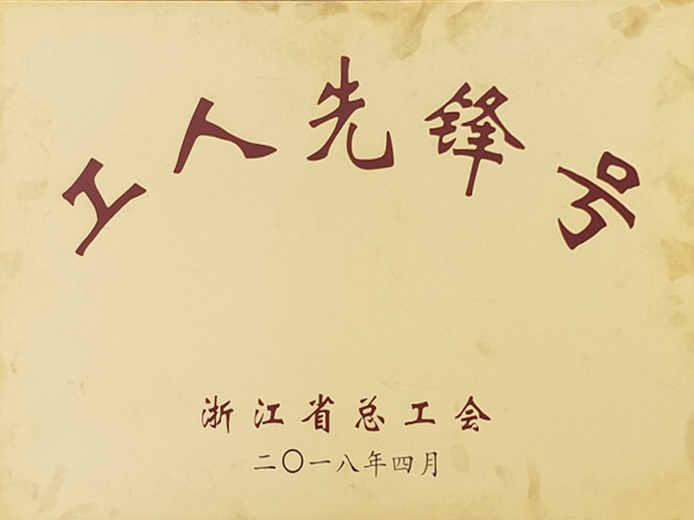 工人先锋号
浙江省总工会
二〇一八年四月